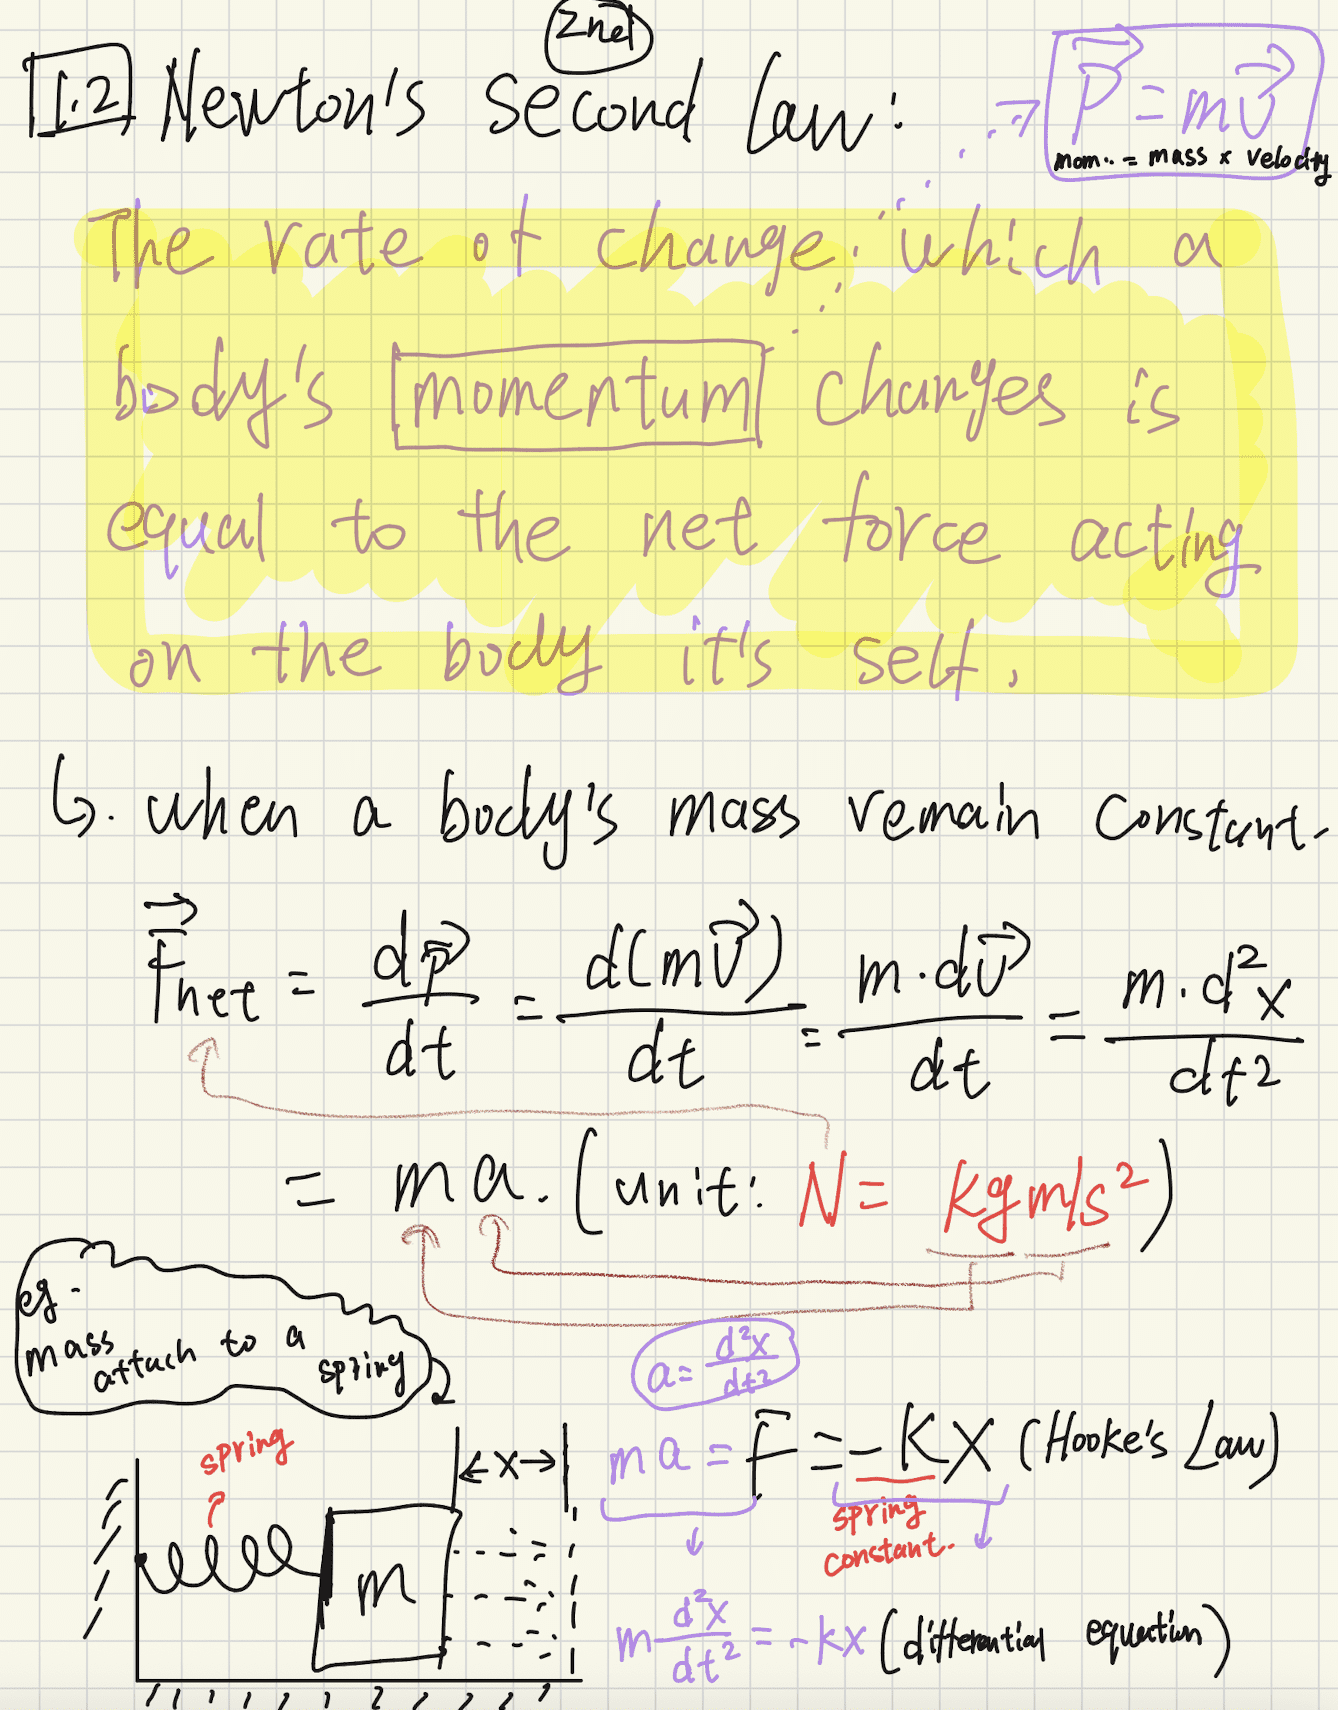 2nd
1.2 Newton's second Law:
P⃗ = mv⃗
mom.. = mass x velocity
The rate of change which a
body's momentum changes is
equal to the net force acting
on the body it's self.
↳. when a body's mass remain constant.
F⃗net = dP⃗/dt = d(mv⃗)/dt = m·dv⃗/dt = m·d²x/dt²
= ma. (unit: N = kgm/s²)
eg.
mass attach to a spring
a = d²x/dt²
spring
← x →
m
ma = F = -kx (Hooke's Law)
spring
constant.
m d²x/dt² = -kx (differential equation)